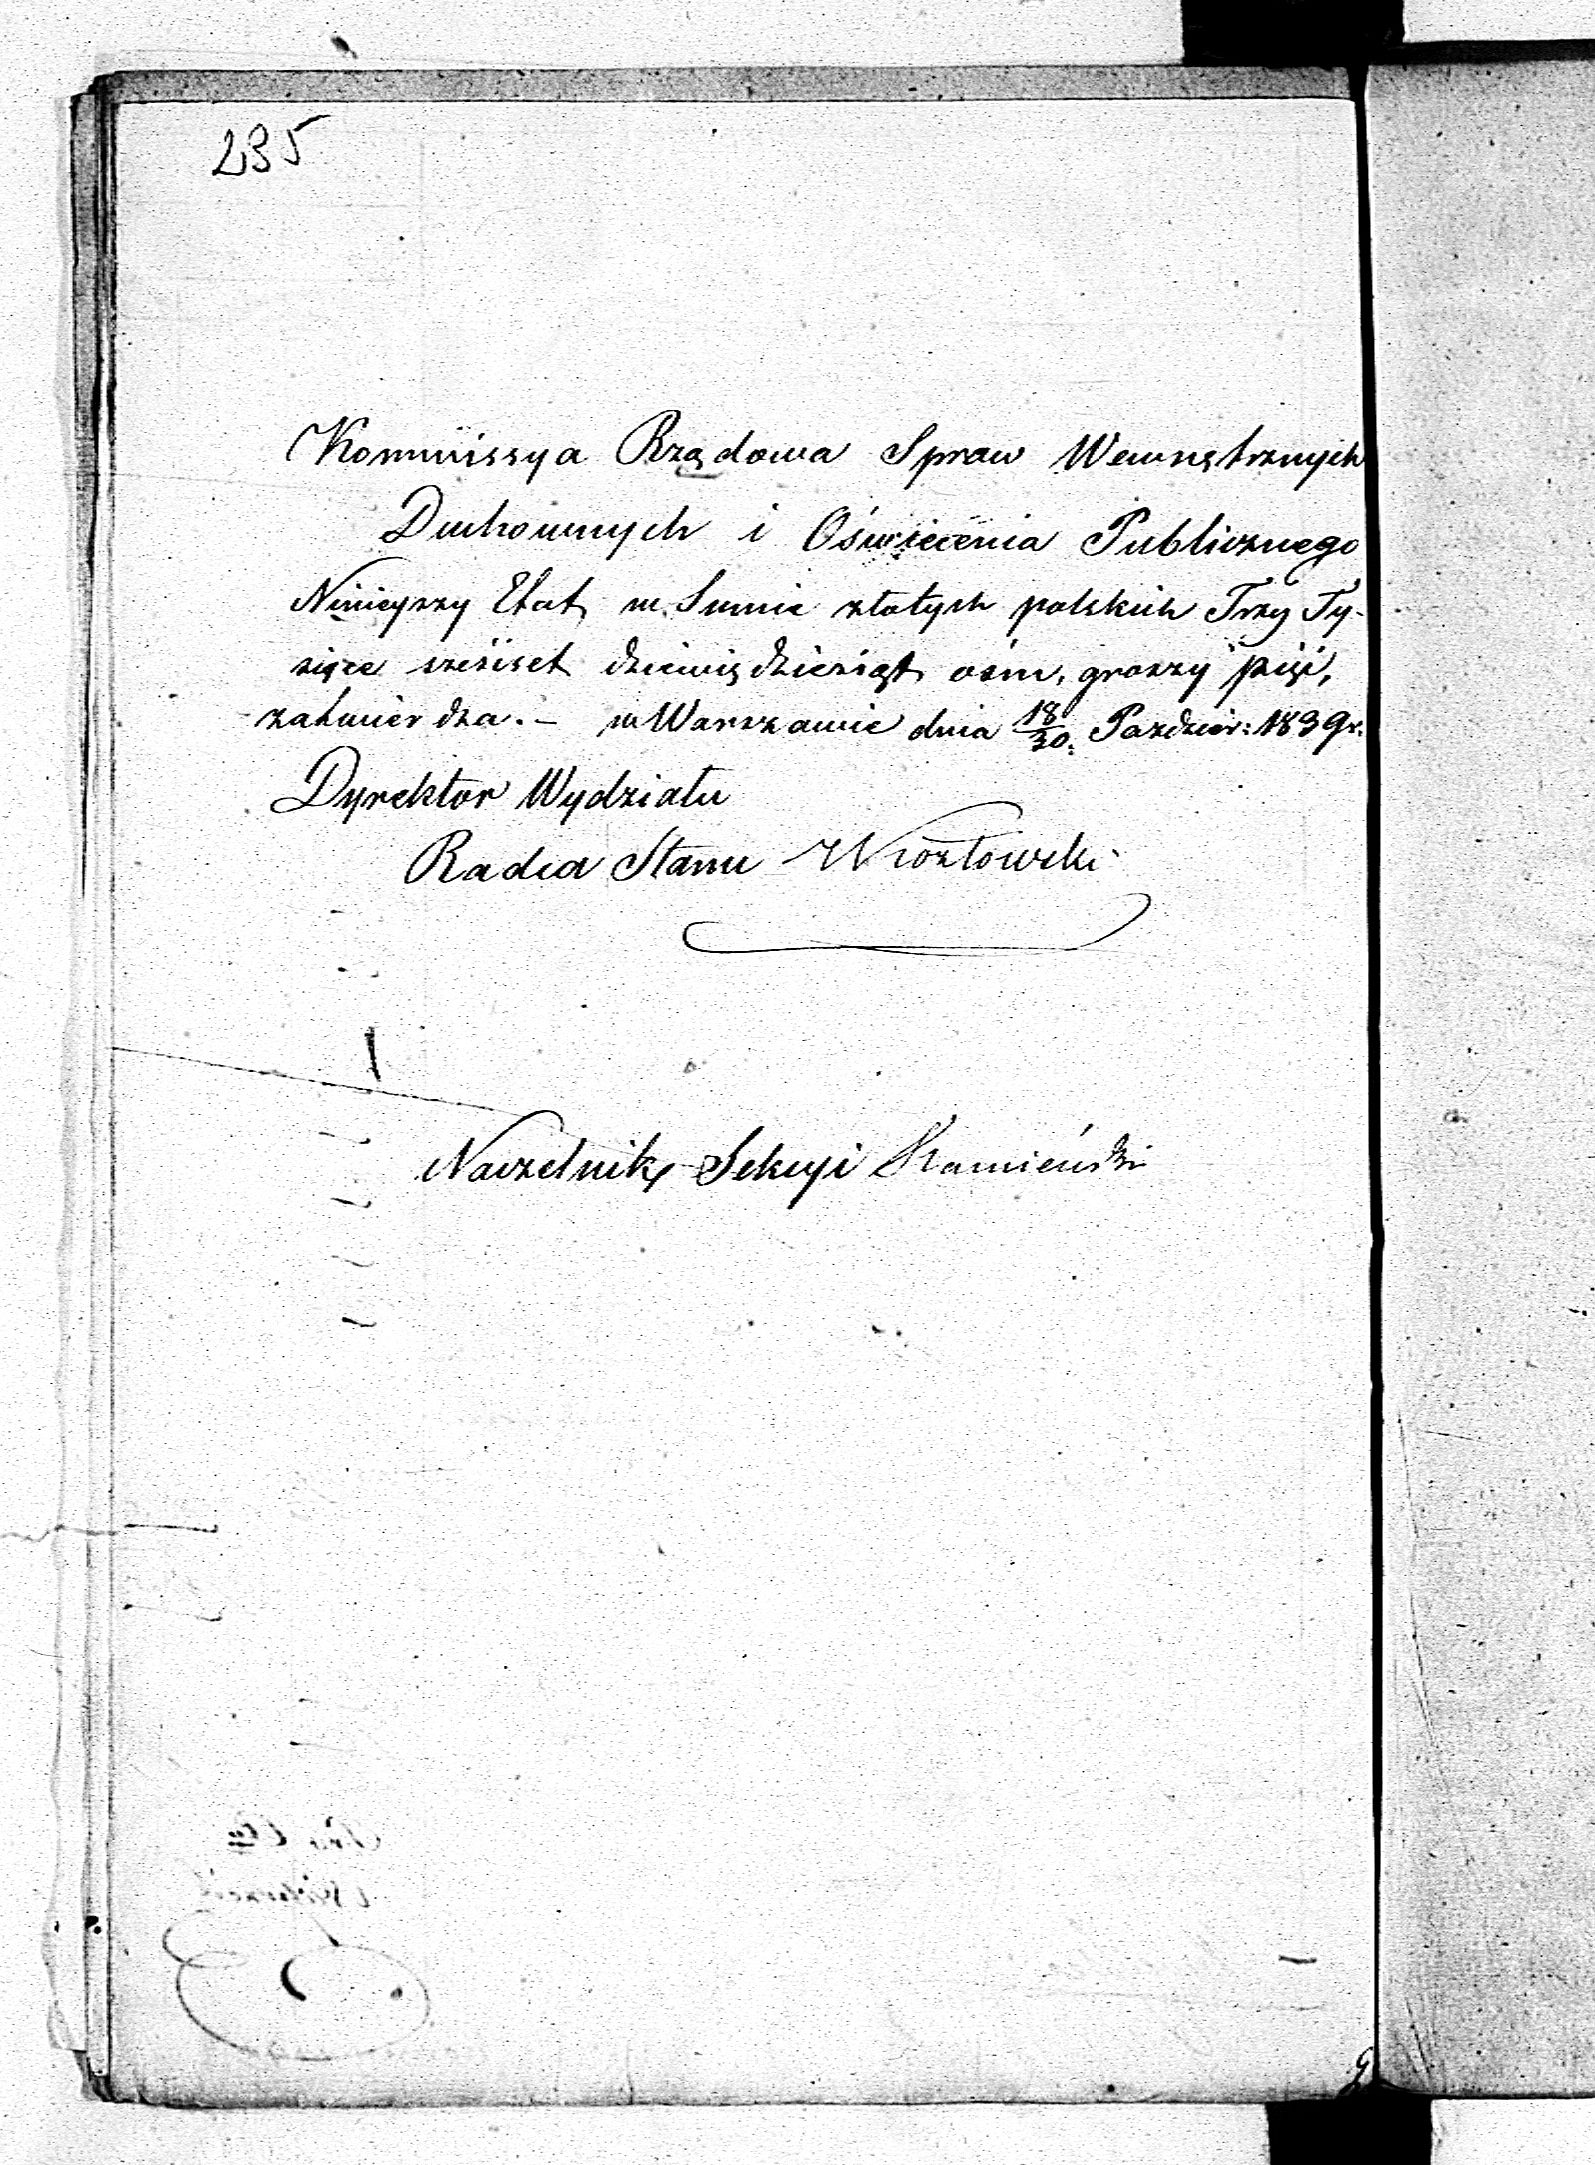 235
Kommissya Rządowa Spraw Wewnętrznych
Duchownych i Oświecenia Publicznego
Ninieyszy Etat w Summie złotych polskich Trzy Ty-
siące sześset dziewiędziesiąt ośm, groszy pięć,
zatwierdza. – w Warszawie dnia 18/30. Paździer: 1839 r.
Dyrektor Wydziału
Radca Stanu Kozłowski
Naczelnik Sekcyi Kamieński